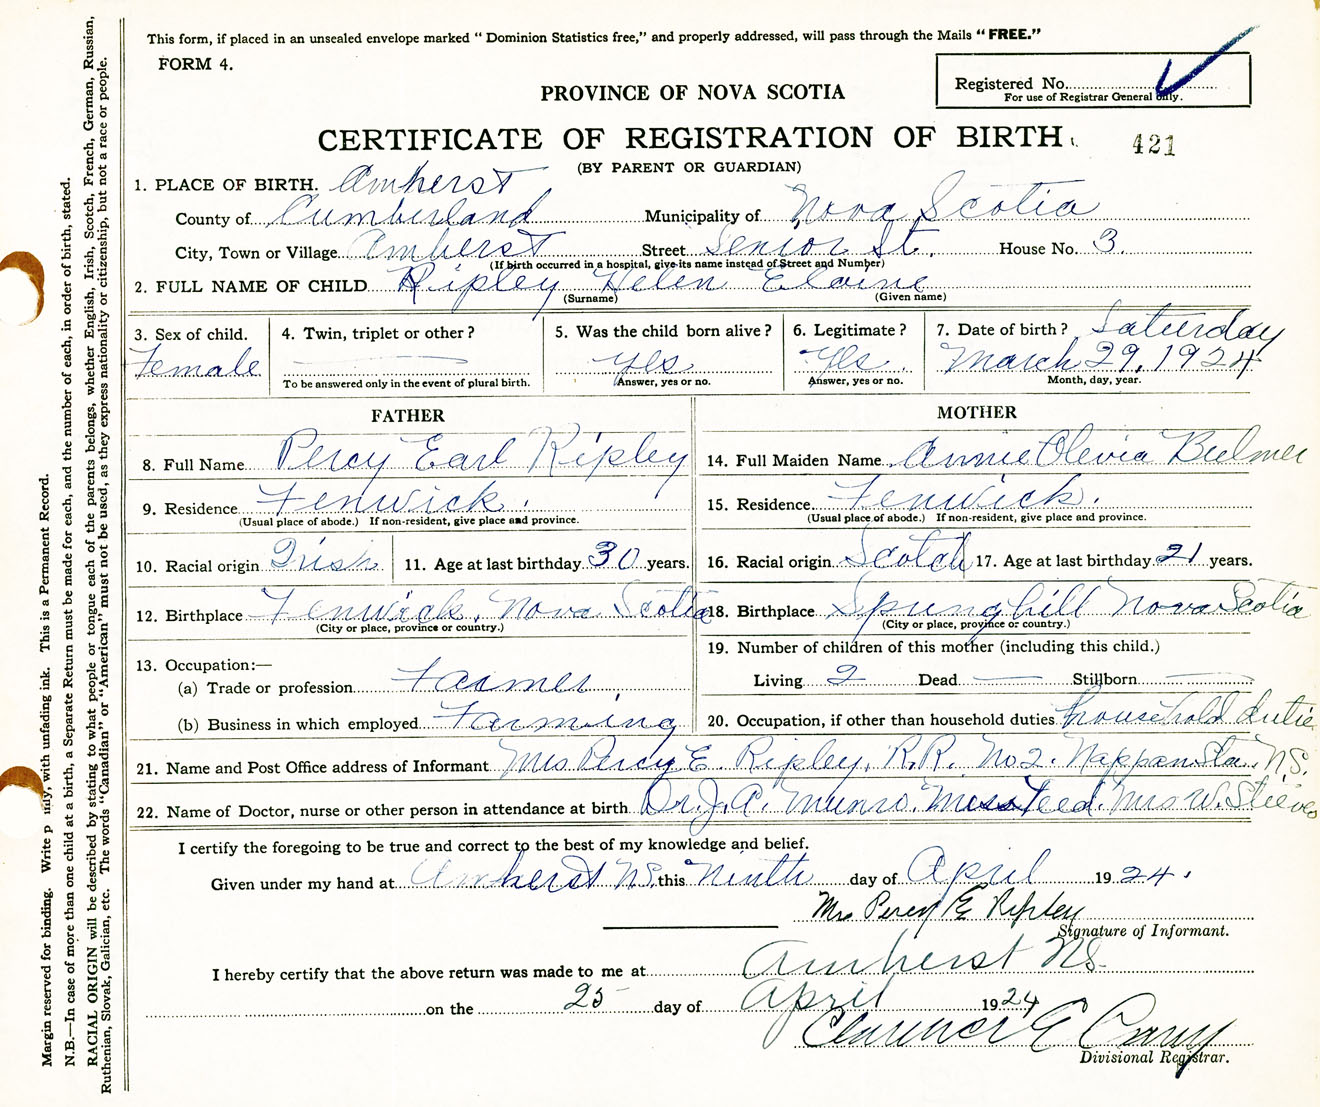 This form, if placed in an unsealed envelope marked " Dominion Statistics free," and properly addressed, will pass through the Mails " FREE."
FORM 4.
PROVINCE OF NOVA SCOTIA
Registered No.
For use of Registrar General only.
CERTIFICATE OF REGISTRATION OF BIRTH
421
(BY PARENT OR GUARDIAN)
1. PLACE OF BIRTH. Amherst
County of Cumberland Municipality of Nova Scotia
City, Town or Village Amherst Street Senior St. House No. 3.
(If birth occurred in a hospital, give its name instead of Street and Number)
2. FULL NAME OF CHILD Ripley Helen Elaine
(Surname) (Given name)
3. Sex of child. 4. Twin, triplet or other ? 5. Was the child born alive ? 6. Legitimate ? 7. Date of birth ? Saturday
Female yes yes. March 29, 1924
To be answered only in the event of plural birth. Answer, yes or no. Answer, yes or no. Month, day, year.
FATHER MOTHER
8. Full Name Percy Earl Ripley 14. Full Maiden Name Annie Olevia Bulmer
9. Residence Fenwick. 15. Residence Fenwick.
(Usual place of abode.) If non-resident, give place and province. (Usual place of abode.) If non-resident, give place and province.
10. Racial origin Irish 11. Age at last birthday 30 years. 16. Racial origin Scotch 17. Age at last birthday 21 years.
12. Birthplace Fenwick, Nova Scotia 18. Birthplace Springhill Nova Scotia
(City or place, province or country.) (City or place, province or country.)
13. Occupation:— 19. Number of children of this mother (including this child.)
(a) Trade or profession Farmer. Living 2 Dead Stillborn
(b) Business in which employed Farming 20. Occupation, if other than household duties household dutie
21. Name and Post Office address of Informant Mrs Percy E. Ripley, R.R. No 2. Nappan Sta. N.S.
22. Name of Doctor, nurse or other person in attendance at birth Dr. J. A. Munro. Miss Teed. Mrs W. Steeves
I certify the foregoing to be true and correct to the best of my knowledge and belief.
Given under my hand at Amherst N.S. this Ninth day of April 1924.
Mrs Percy E Ripley
Signature of Informant.
I hereby certify that the above return was made to me at Amherst NS.
on the 25 day of April 1924
Clarence E
Divisional Registrar.
Margin reserved for binding. Write nly, with unfading ink. This is a Permanent Record.
N.B.—In case of more than one child at a birth, a Separate Return must be made for each, and the number of each, in order of birth, stated.
RACIAL ORIGIN will be described by stating to what people or tongue each of the parents belongs, whether English, Irish, Scotch, French, German, Russian,
Ruthenian, Slovak, Galician, etc. The words "Canadian" or "American" must not be used, as they express nationality or citizenship, but not a race or people.